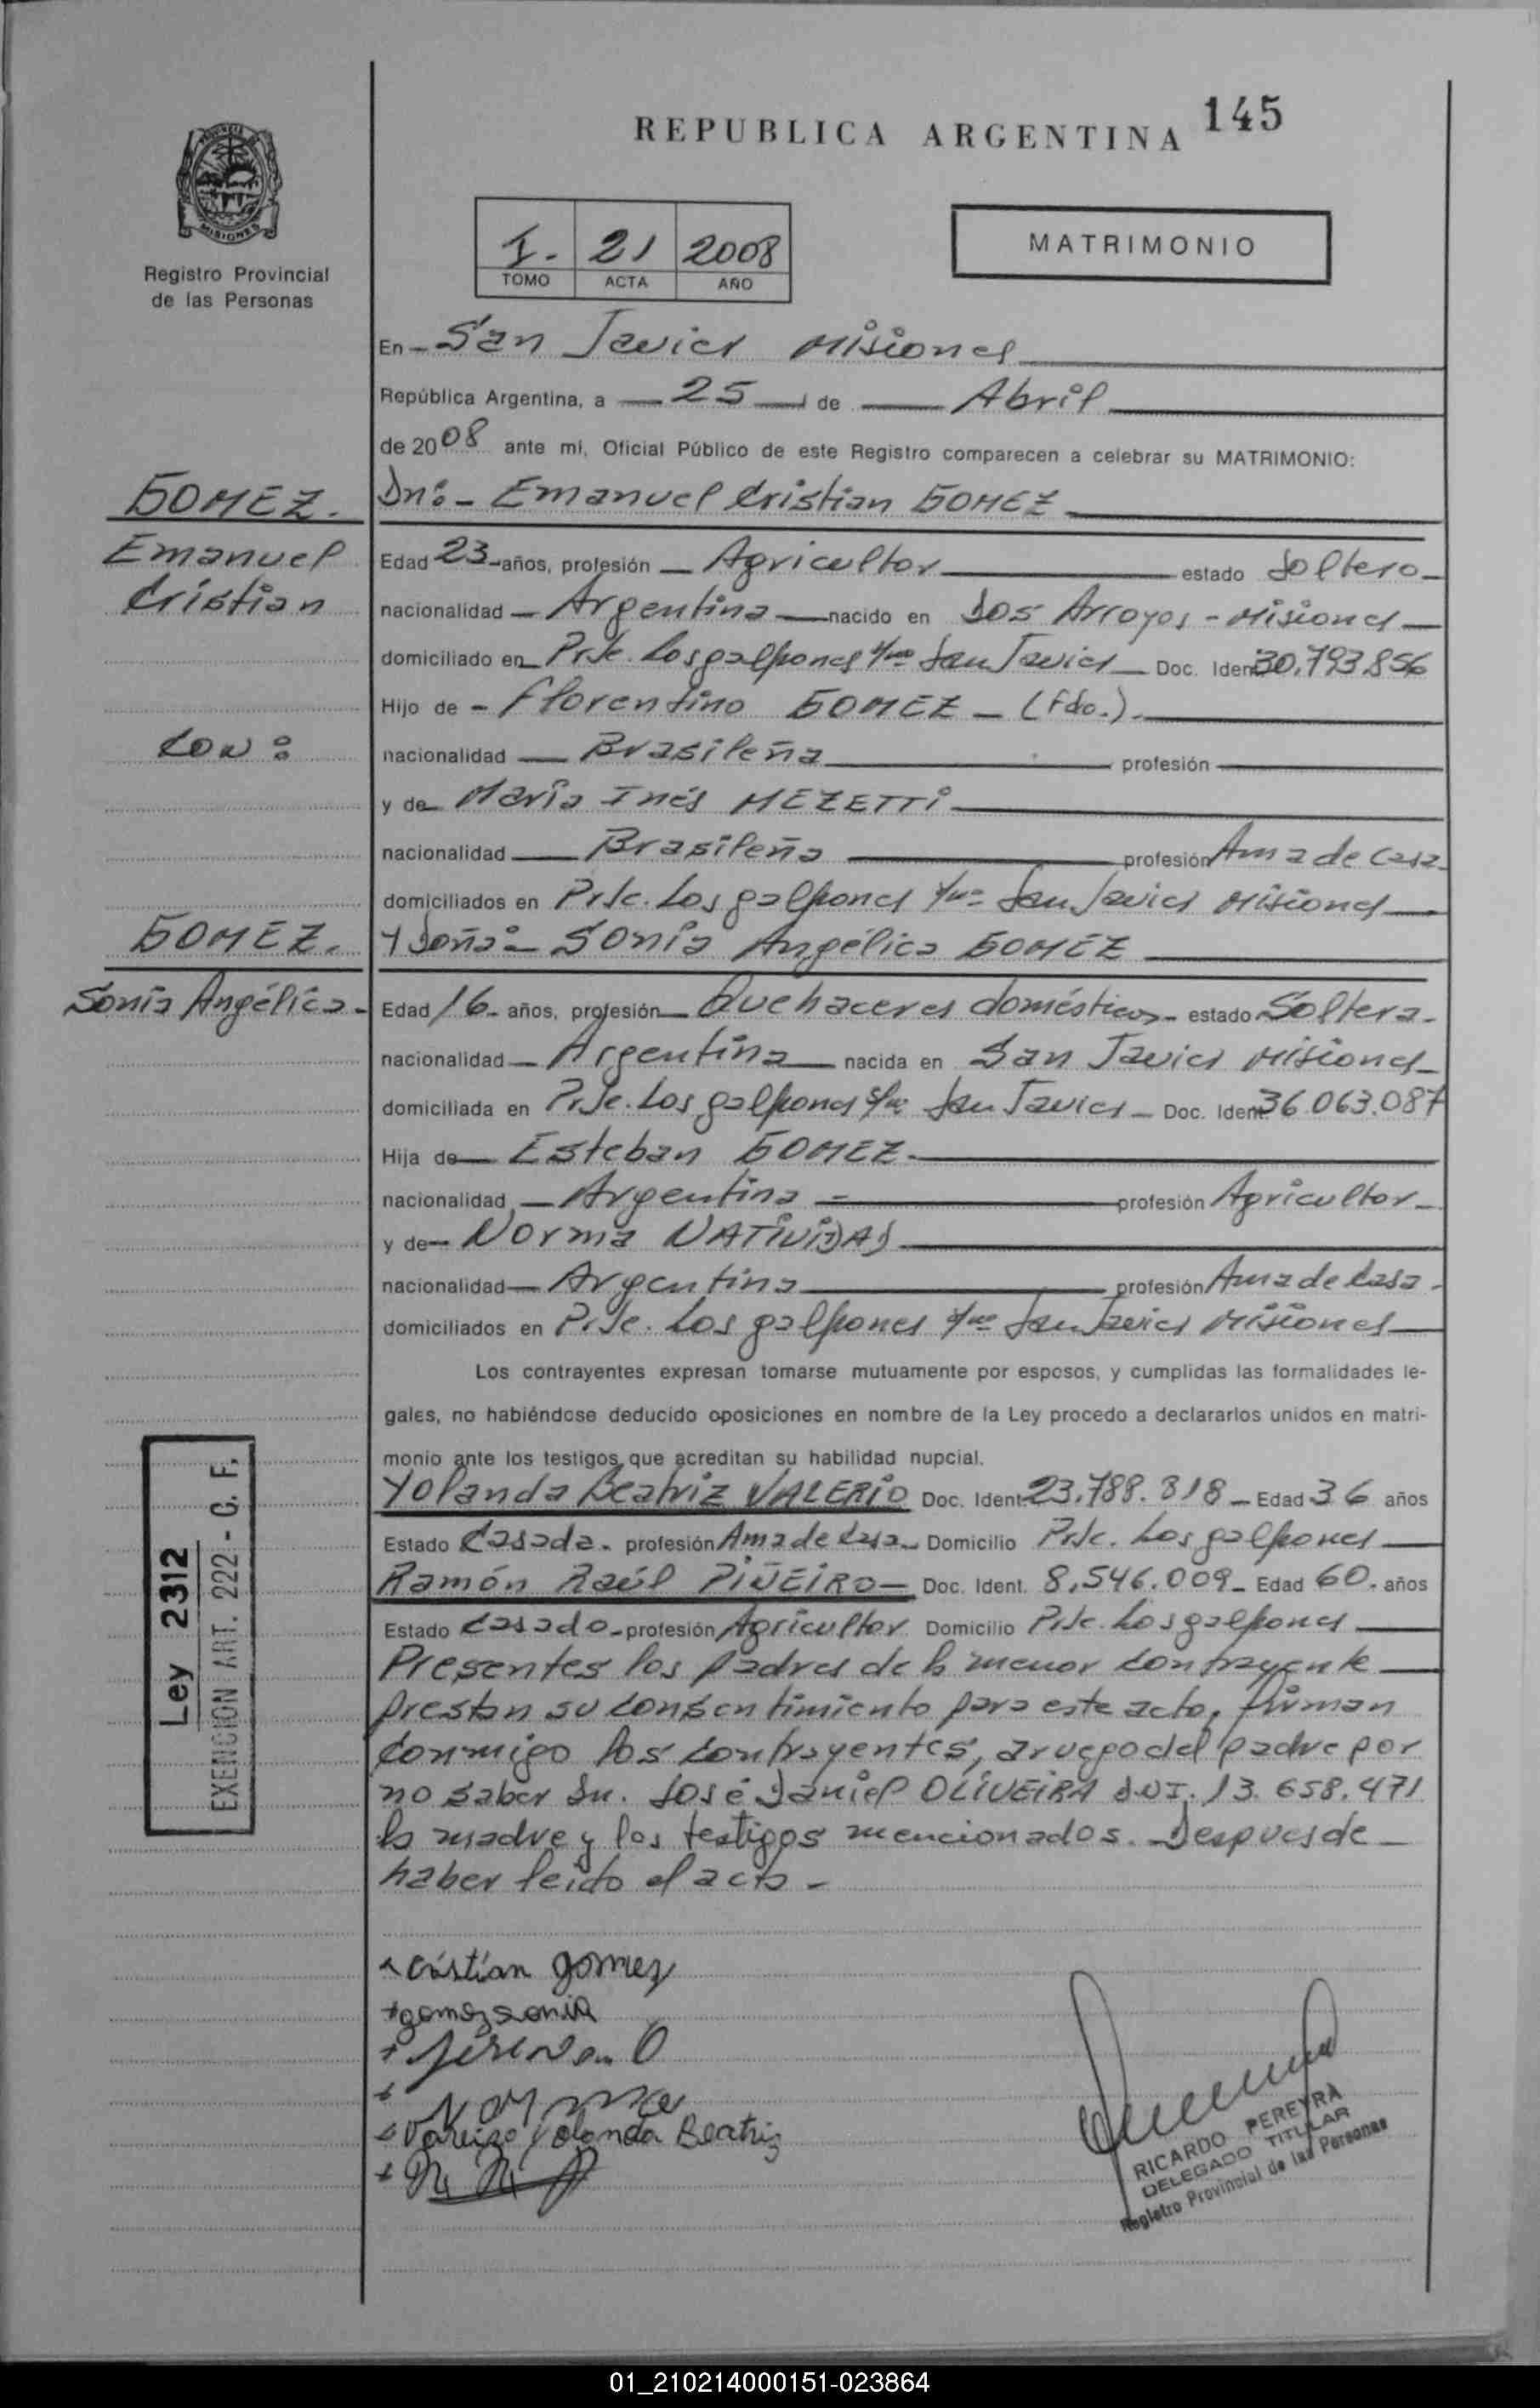 REPUBLICA ARGENTINA 145
MISIONES
Registro Provincial
de las Personas
I. 21 2008
TOMO ACTA AÑO
MATRIMONIO
En San Javier Misiones
República Argentina, a 25 de Abril
de 2008 ante mí, Oficial Público de este Registro comparecen a celebrar su MATRIMONIO:
GOMEZ.
Dn:- Emanuel Cristian GOMEZ
Emanuel
Cristian
Edad 23 años, profesión Agricultor estado Soltero
nacionalidad Argentina nacido en Dos Arroyos - Misiones
domiciliado en Pje. Los galpones s/nº San Javier Doc. Ident 30.793.856
Hijo de Florentino GOMEZ - (Fdo.).
CON:
nacionalidad Brasileña profesión
y de María Inés MEZETTI
nacionalidad Brasileña profesión Ama de Casa
domiciliados en Pje. Los galpones s/nº San Javier Misiones
GOMEZ.
Y Doña:- Sonia Angélica GOMEZ
Sonia Angélica-
Edad 16 años, profesión Quehaceres domésticos estado Soltera
nacionalidad Argentina nacida en San Javier Misiones
domiciliada en Pje. Los galpones s/nº San Javier Doc. Ident 36.063.087
Hija de Esteban GOMEZ
nacionalidad Argentina profesión Agricultor
y de Norma NATIVIDAD
nacionalidad Argentina profesión Ama de Casa
domiciliados en Pje. Los galpones s/nº San Javier Misiones
Los contrayentes expresan tomarse mutuamente por esposos, y cumplidas las formalidades le-
gales, no habiéndose deducido oposiciones en nombre de la Ley procedo a declararlos unidos en matri-
monio ante los testigos que acreditan su habilidad nupcial.
Yolanda Beatriz VALERIO Doc. Ident. 23.788.818 Edad 36 años
Estado Casada profesión Ama de Casa Domicilio Pje. Los galpones
Ramón Raúl PIÑEIRO Doc. Ident. 8.546.009 Edad 60 años
Estado Casado profesión Agricultor Domicilio Pje. Los galpones
Presentes los padres de la menor contrayente
prestan su consentimiento para este acto, firman
conmigo los contrayentes, a ruego del padre por
no saber Dn. José Daniel OLIVEIRA D.N.I. 13.658.471
la madre y los testigos mencionados. Después de
haber leído el acta -
Ley 2312
EXENCION ART. 222 - C. F.
Cristian gomez
gomez sonia
Norma
Yolanda Beatriz
RICARDO PEREYRA
DELEGADO TITULAR
Registro Provincial de las Personas
01_210214000151-023864